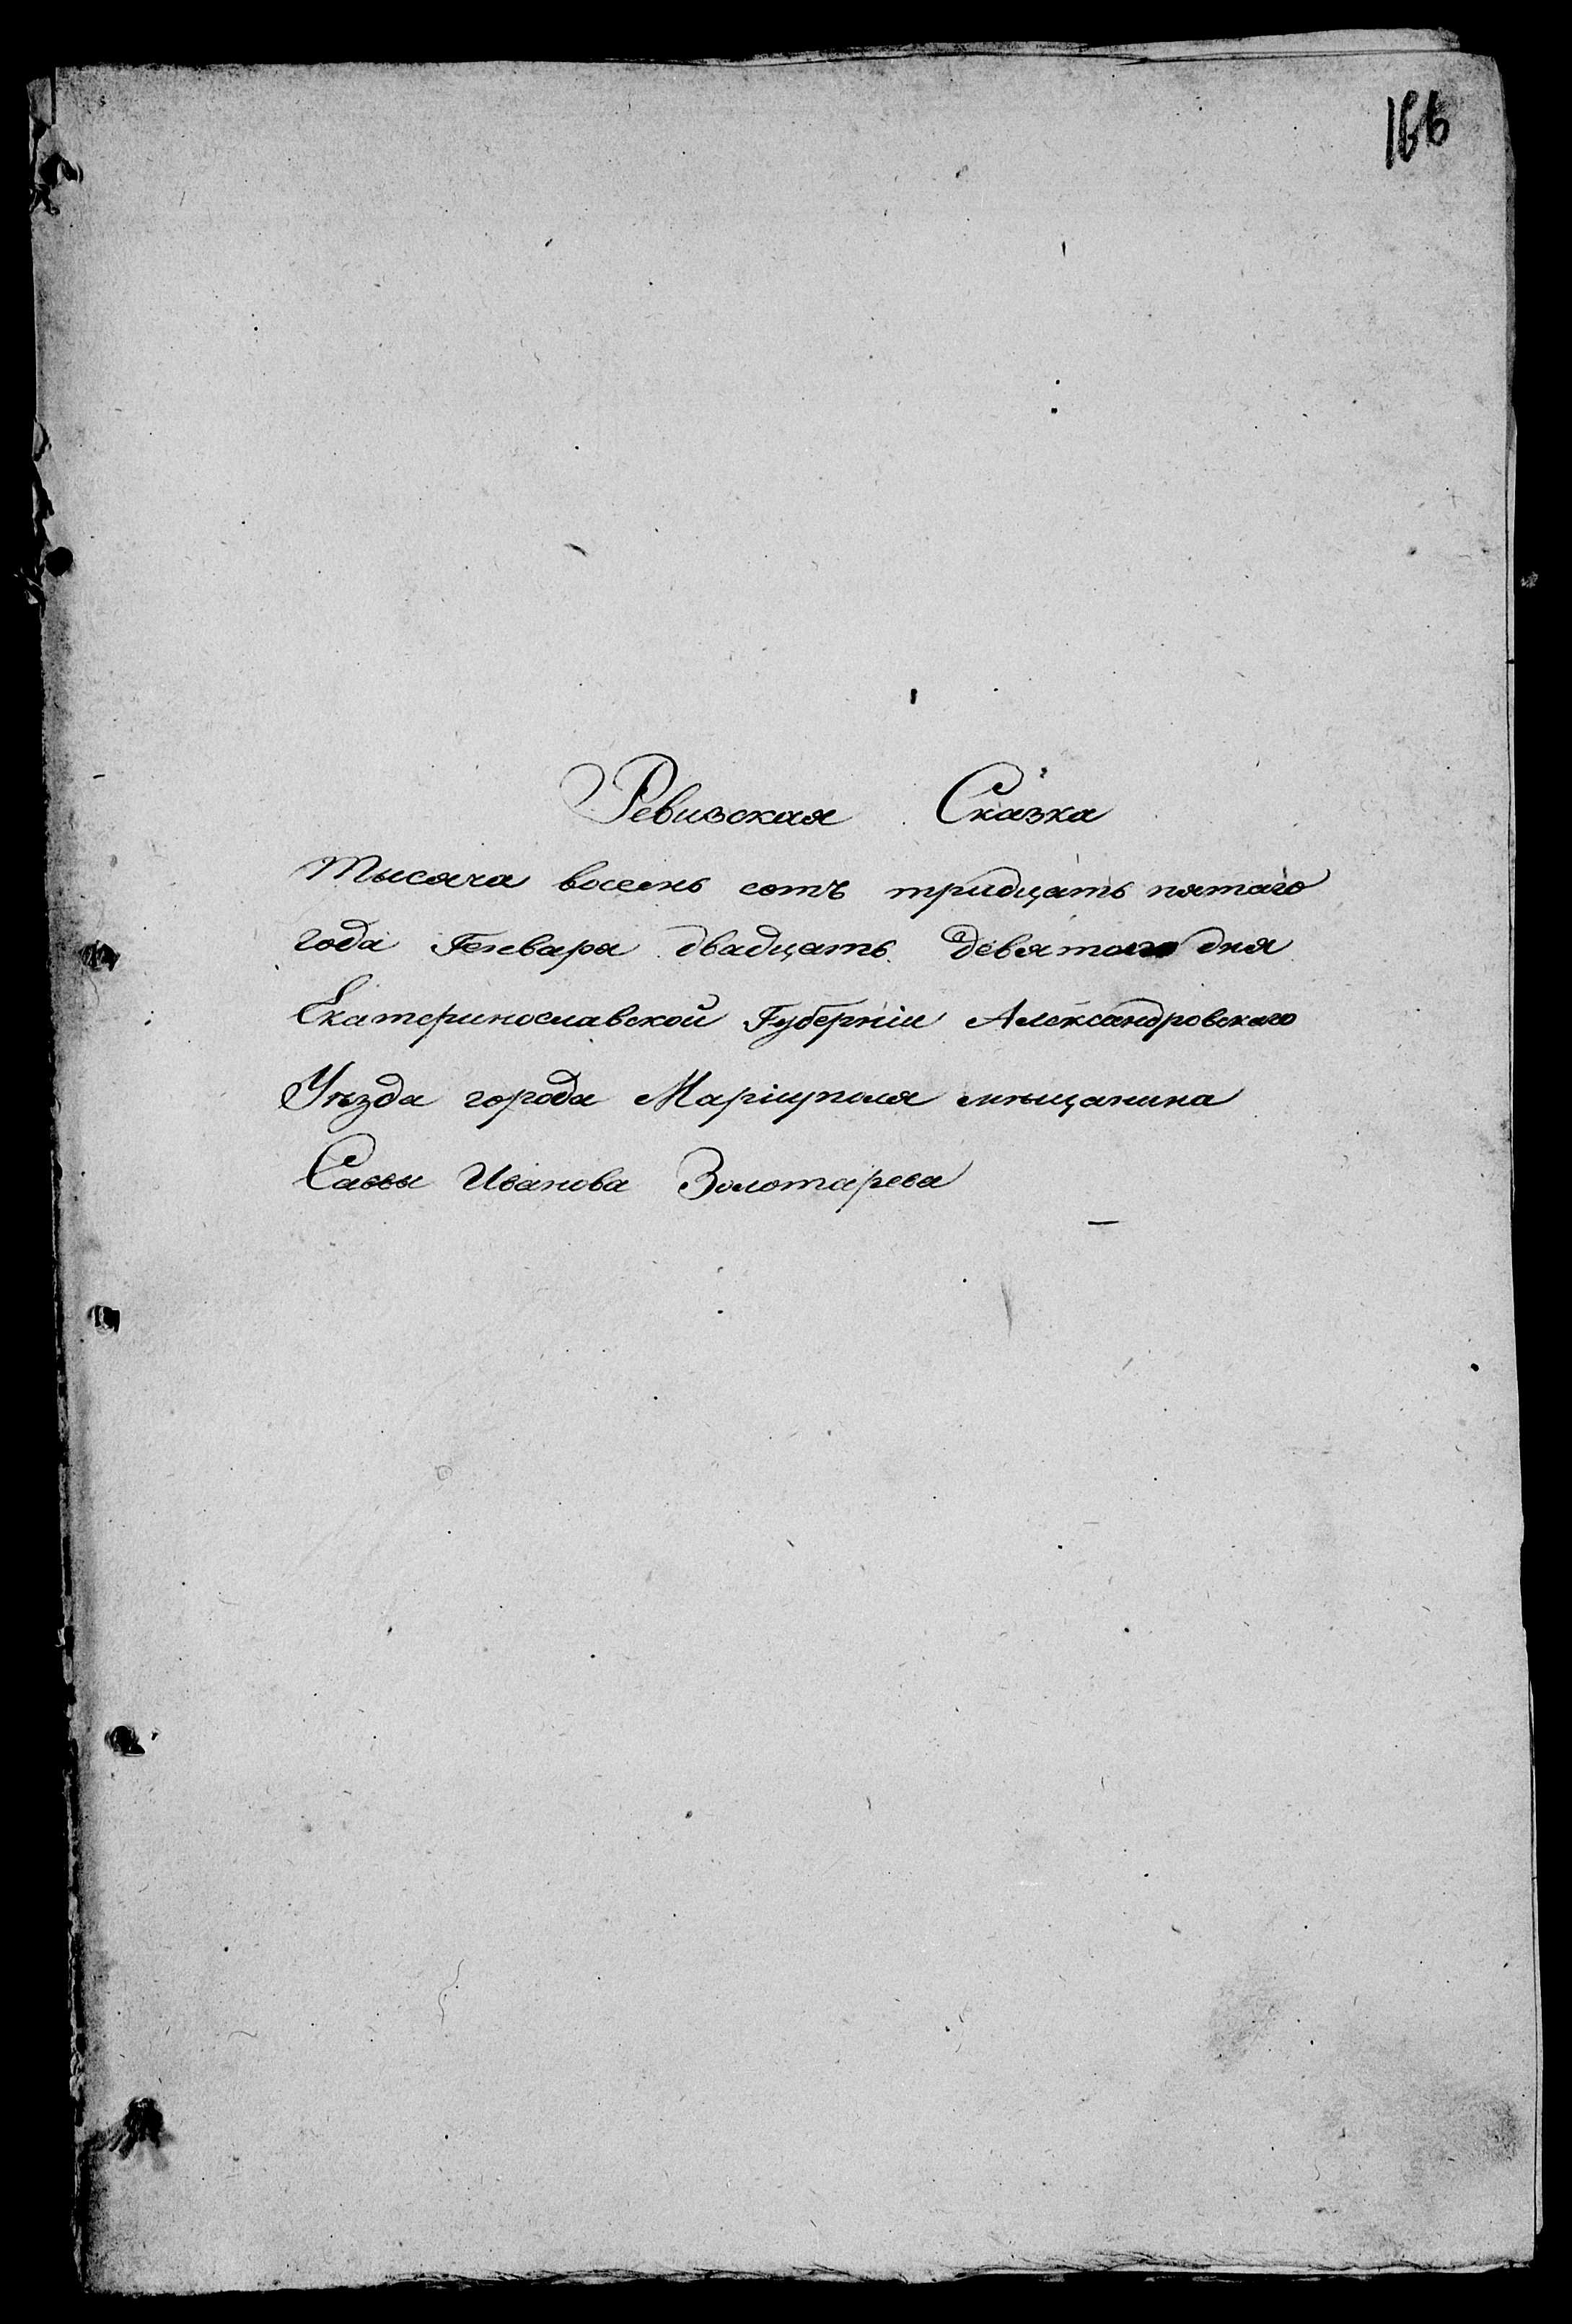 166
Ревизская Сказка
Тысяча восемь сотъ тридцать пятаго
года Генваря двадцать девятого дня
Екатеринославской Губерніи Александровскаго
Уѣзда города Маріуполя мѣщанина
Саввы Иванова Золотарева